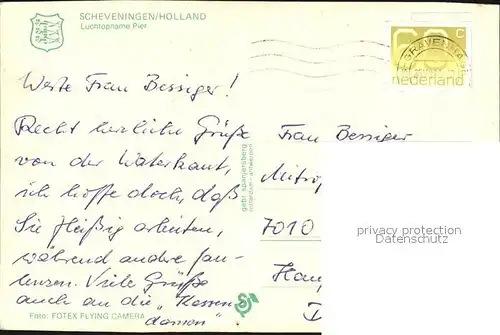 SCHEVENINGEN/HOLLAND
Luchtopname Pier
C
'S-GRAVENHA
nederland
Werte Frau Bessiger!
Recht herzliche Grüße
von der Waterkant,
ich hoffe doch, daß
Sie fleißig arbeiten,
während andre fau-
lenzen. Viele Grüße
auch an die "Kassen
damen"
Foto: FOTEX FLYING CAMERA
gebr. spanjersberg
rotterdam - antwerpen
Frau Bessiger
Mitrop
7010
privacy protection
Datenschutz